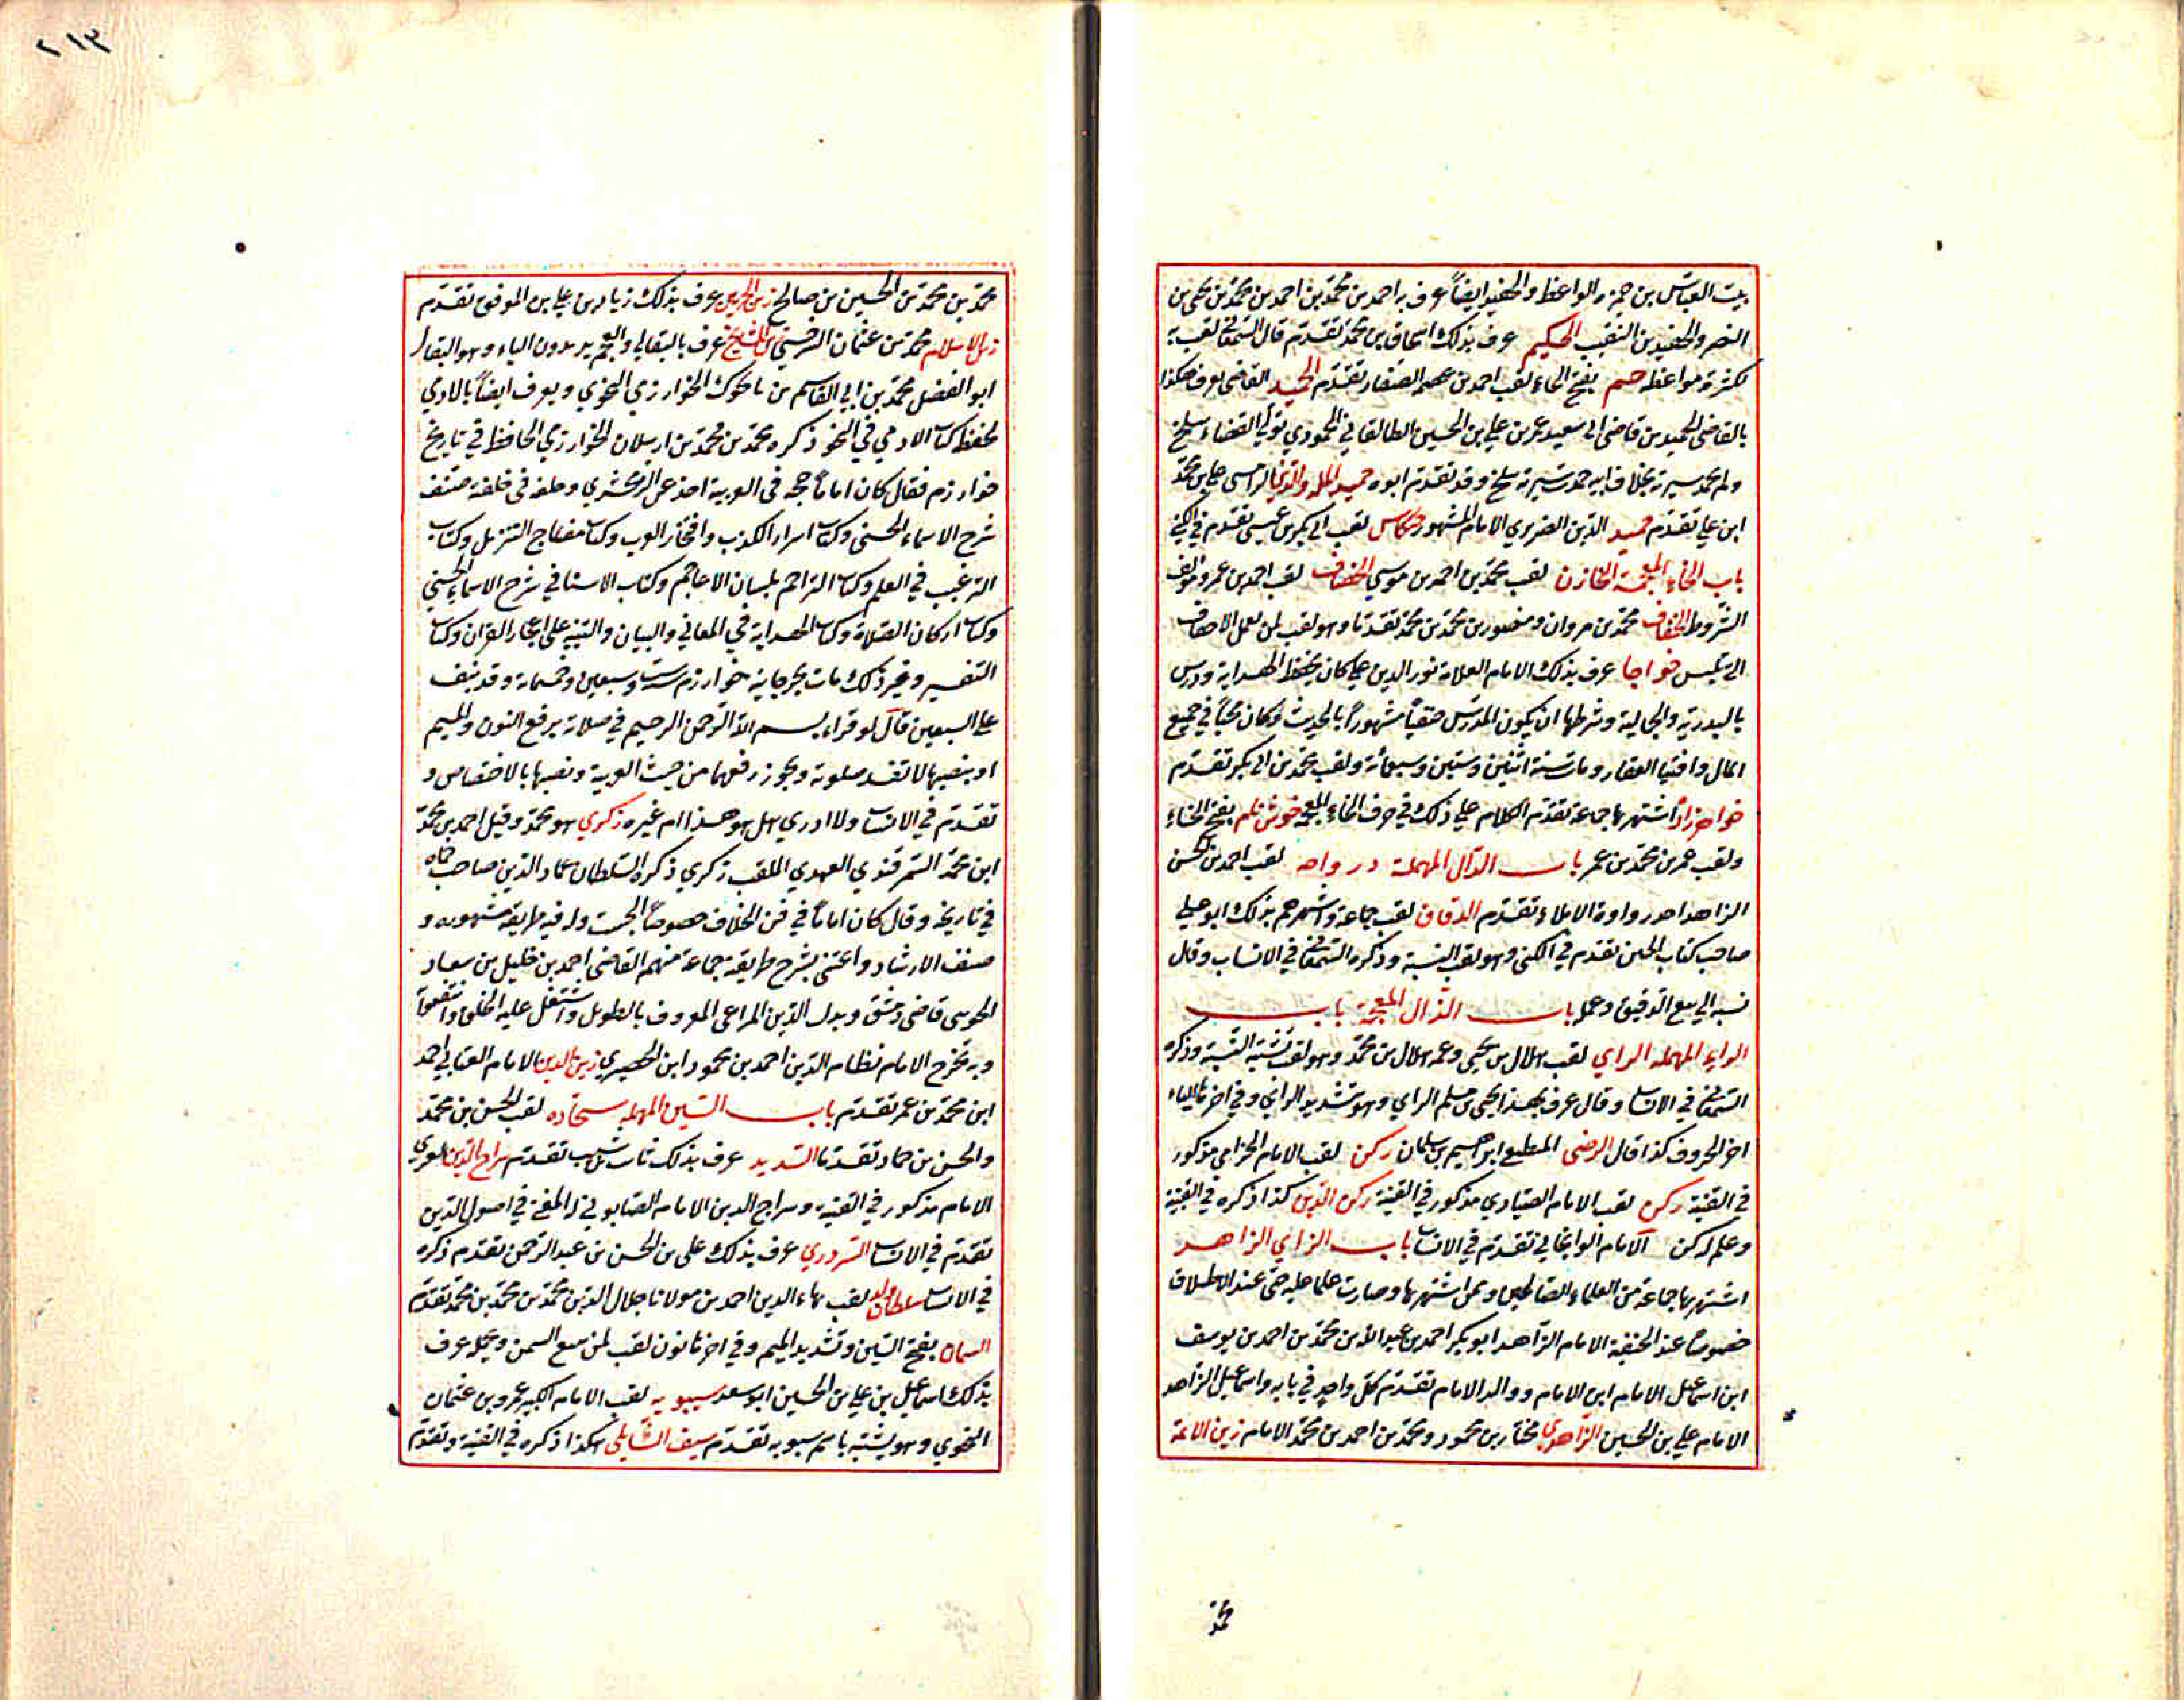 بيت العباس بن حمزه الواعظ والحفيد ايضاً عرف به احمد بن محمد بن احمد بن محمد بن يحيى بن
النضر والحفيد بن النقيب الحكيم عرف بذلك اسحاق بن محمد تقدم قال السمعاني لقب به
لكثرة مواعظه حم بفتح الحاء لقب احمد بن عصم الصفار تقدم الحميد القاضي يعرف هكذا
بالقاضي الحميد بن قاضي ابي سعيد عمر بن علي بن الحسين الطالقاني المحمودي تولى القضاء ببلخ
ولم يحمد سيرته بخلاف ابيه حمدت سيرته ببلخ وقد تقدم ابوه حميد الملة والدين الرامسي علي بن محمد
ابن علي تقدم حميد الدين الضرير الامام المشهور لقب ابي بكر بن عيسى تقدم في الكنى
باب الخاء المعجمة الخازن لقب محمد بن احمد بن موسى الخصاف لقب احمد بن عمرو مؤلف
الشروط الخفاف محمد بن مروان ومنصور بن محمد بن محمد تقدما وهو لقب لمن يعمل الاخفاف
التي تلبس خواجا عرف بذلك الامام العلامة نور الدين علي كان يحفظ الهداية ودرس
بالبدرية والجمالية وشرطها ان يكون المدرس حنفياً مشهوراً بالحديث وكان محباً في جمع
المال واقتنا العقار ومات سنة اثنين وستين وسبعمائة ولقب محمد بن ابي بكر تقدم
خواهرزاد اشتهر بها جماعة تقدم الكلام علي ذلك في حرف الخاء المعجمة خوش نام بفتح الخاء
ولقب عمر بن محمد بن عمر باب الدال المهملة در واحه لقب احمد بن الحسن
الزاهد احد رواة الاملاء تقدم الدقاق لقب جماعة واشهرهم بذلك ابو علي
صاحب كتاب الحيض تقدم في الكنى وهو لقب النسبة وذكره السمعاني في الانساب وقال
نسبة الي بيع الدقيق وعمل باب الذال المعجمة باب
الراء المهملة الراي لقب هلال بن يحيى وعمه هلال بن محمد وهو لقب يشبه النسبة وذكره
السمعاني في الانساب وقال عرف بهذا يحيى بن مسلم الراي وهو بتشديد الراي وفي اخرها الياء
اخر الحروف كذا قال الرضي المطلع ابراهيم بن سلمان ركن لقب الامام الخزامي مذكور
في القنية ركن لقب الامام الصيادي مذكور في القنية ركن الدين كذا ذكره في القنية
وعلم لركن الامام الوانجاني تقدم في الانساب باب الزاي الزاهد
اشتهر بها جماعة من العلماء الصالحين ومن اشتهر بها وصارت علما عليه حتى عند الاطلاق
خصوصا عند الحنفية الامام الزاهد ابو بكر احمد بن عبد الله بن محمد بن احمد بن يوسف
ابن اسمعيل الامام ابن الامام ووالد الامام تقدم كل واحد في بابه واسماعيل الزاهد
الامام علي بن الحسين الزاهدي مختار بن محمود ومحمد بن احمد بن محمد الامام زين الائمة
محمد
٢١٣
محمد بن محمد بن الحسين بن صالح زين الحرمين عرف بذلك زياد بن علي بن الموفق تقدم
زين الاسلام محمد بن عثمان السرخسي زين المشايخ عرف بالبقالي والعجم يريدون الياء وهو البقال
ابو الفضل محمد بن ابي القاسم بن باجوك الخوارزمي النحوي ويعرف ايضاً بالادمي
لحفظ كتاب الادمي في النحو ذكره محمد بن محمد بن ارسلان الخوارزمي الحافظ في تاريخ
خوارزم فقال كان اماماً حجة في العربية اخذ عن الزمخشري وخلفه في حلقته صنف
شرح الاسماء الحسنى وكتاب اسرار الكذب وافتخار العرب وكتاب مفتاح التنزيل وكتاب
الترغيب في العلم وكتاب التراجم بلسان الاعاجم وكتاب الاسنا في شرح الاسماء الحسنى
وكتاب اركان الصلاة وكتاب الهداية في المعاني والبيان والتنبيه على اعجاز القران وكتاب
التفسير وغير ذلك مات بجرجانية خوارزم سنة ست وسبعين وخمسمائة وقد نيف
على السبعين قال لو قراء بسم الله الرحمن الرحيم في صلاته برفع النون والميم
او بنصبهما لا تفسد صلوته ويجوز رفعهما من حيث العربية ونصبها بالاختصاص و
تقدم في الانساب ولا ادري هل هو هذا ام غيره زكري هو محمد وقيل احمد بن محمد
ابن محمد السمرقندي العميدي الملقب زكري ذكره السلطان عماد الدين صاحب حماه
في تاريخه وقال كان اماماً في فن الخلاف خصوصاً الجست وله فيه طريقة مشهورة و
صنف الارشاد واعتنى بشرح طريقته جماعة منهم القاضي احمد بن خليل بن سعاد
الخوبي قاضي دمشق وبدر الدين المراغي المعروف بالطويل واشتغل عليه الخلق وانتفعوا
وبه تخرج الامام نظام الدين احمد بن محمود ابن الحصيري زين الدين الامام العتابي احمد
ابن محمد بن عمر تقدم باب السين المهملة سجاده لقب الحسن بن محمد
والحسن بن حماد تقدما السديد عرف بذلك ثابت بن شبيب تقدم سراج الدين
الامام مذكور في القنية وسراج الدين الامام الصابوني له المغني في اصول الدين
تقدم في الانساب السردري عرف بذلك علي بن الحسن بن عبد الرحمن تقدم ذكره
في الانساب سلطان ولد لقب بهاء الدين احمد بن مولانا جلال الدين محمد بن محمد بن محمد تقدم
السمان بفتح السين وتشديد الميم وفي اخرها نون لقب لمن يبيع السمن ويحمله عرف
بذلك اسماعيل بن علي بن الحسين ابو سعد سيبويه لقب الامام الكبير عمرو بن عثمان
النحوي وهو يشتبه باسم سيبويه تقدم سيف الشايلي هكذا ذكره في القنية وتقدم